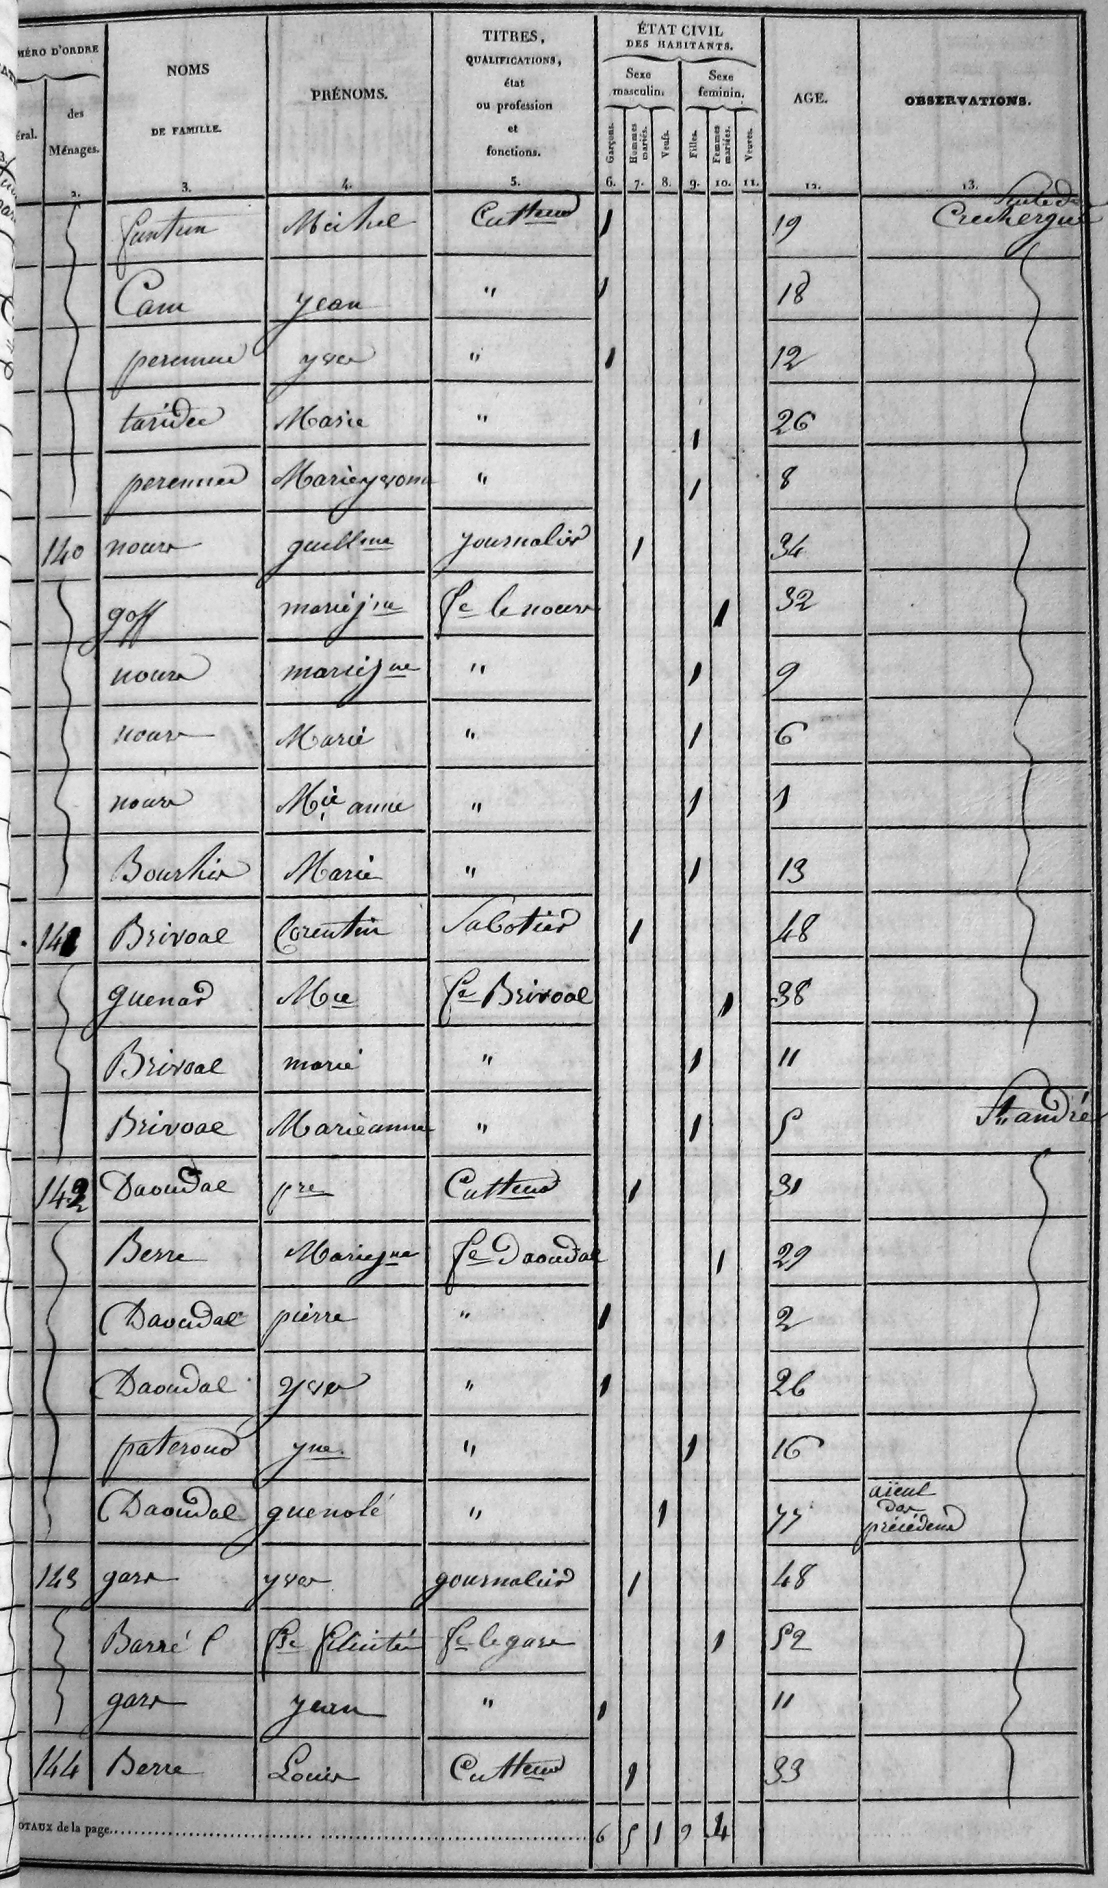 MÉRO D'ORDRE
éral.
des
Ménages.
2.
NOMS
DE FAMILLE.
3.
PRÉNOMS.
4.
TITRES,
QUALIFICATIONS,
état
ou profession
et
fonctions.
5.
ÉTAT CIVIL
DES HABITANTS.
Sexe
masculin.
Sexe
feminin.
Garçons.
Hommes mariés.
Veufs.
Filles.
Femmes mariées.
Veuves.
6. 7. 8. 9. 10. 11.
AGE.
12.
OBSERVATIONS.
13.
Suite de
fantun Michel Cultteur 1 19 Creckergué
Cam yean " 1 18
perennee yves " 1 12
taridec Marie " 1 26
perennec Marie yvonne " 1 8
140 nours guillme journalier 1 34
goff marie jne fe le nours 1 32
nours marie jne " 1 9
nours Marie " 1 6
nours Mie anne " 1 1
Bourhis Marie " 1 13
141 Brivoal Corentin Sabotier 1 48
guenad Mie fe Brivoal 1 38
Brivoal marie " 1 11
Brivoal Marie anne " 1 5 St andré
142 Daoudal pre Cultteur 1 31
Berre Marie jne fe Daoudal 1 29
Daoudal pierre " 1 2
Daoudal yves " 1 26
paterour yne " 1 16
Daoudal guenolé " 1 77 aïeul
des
précédens
143 gars yves journalier 1 48
Barré f fse félicité fe le gars 1 52
gars yean " 1 11
144 Berre Louis Cultteur 1 33
OTAUX de la page 6 5 1 9 4